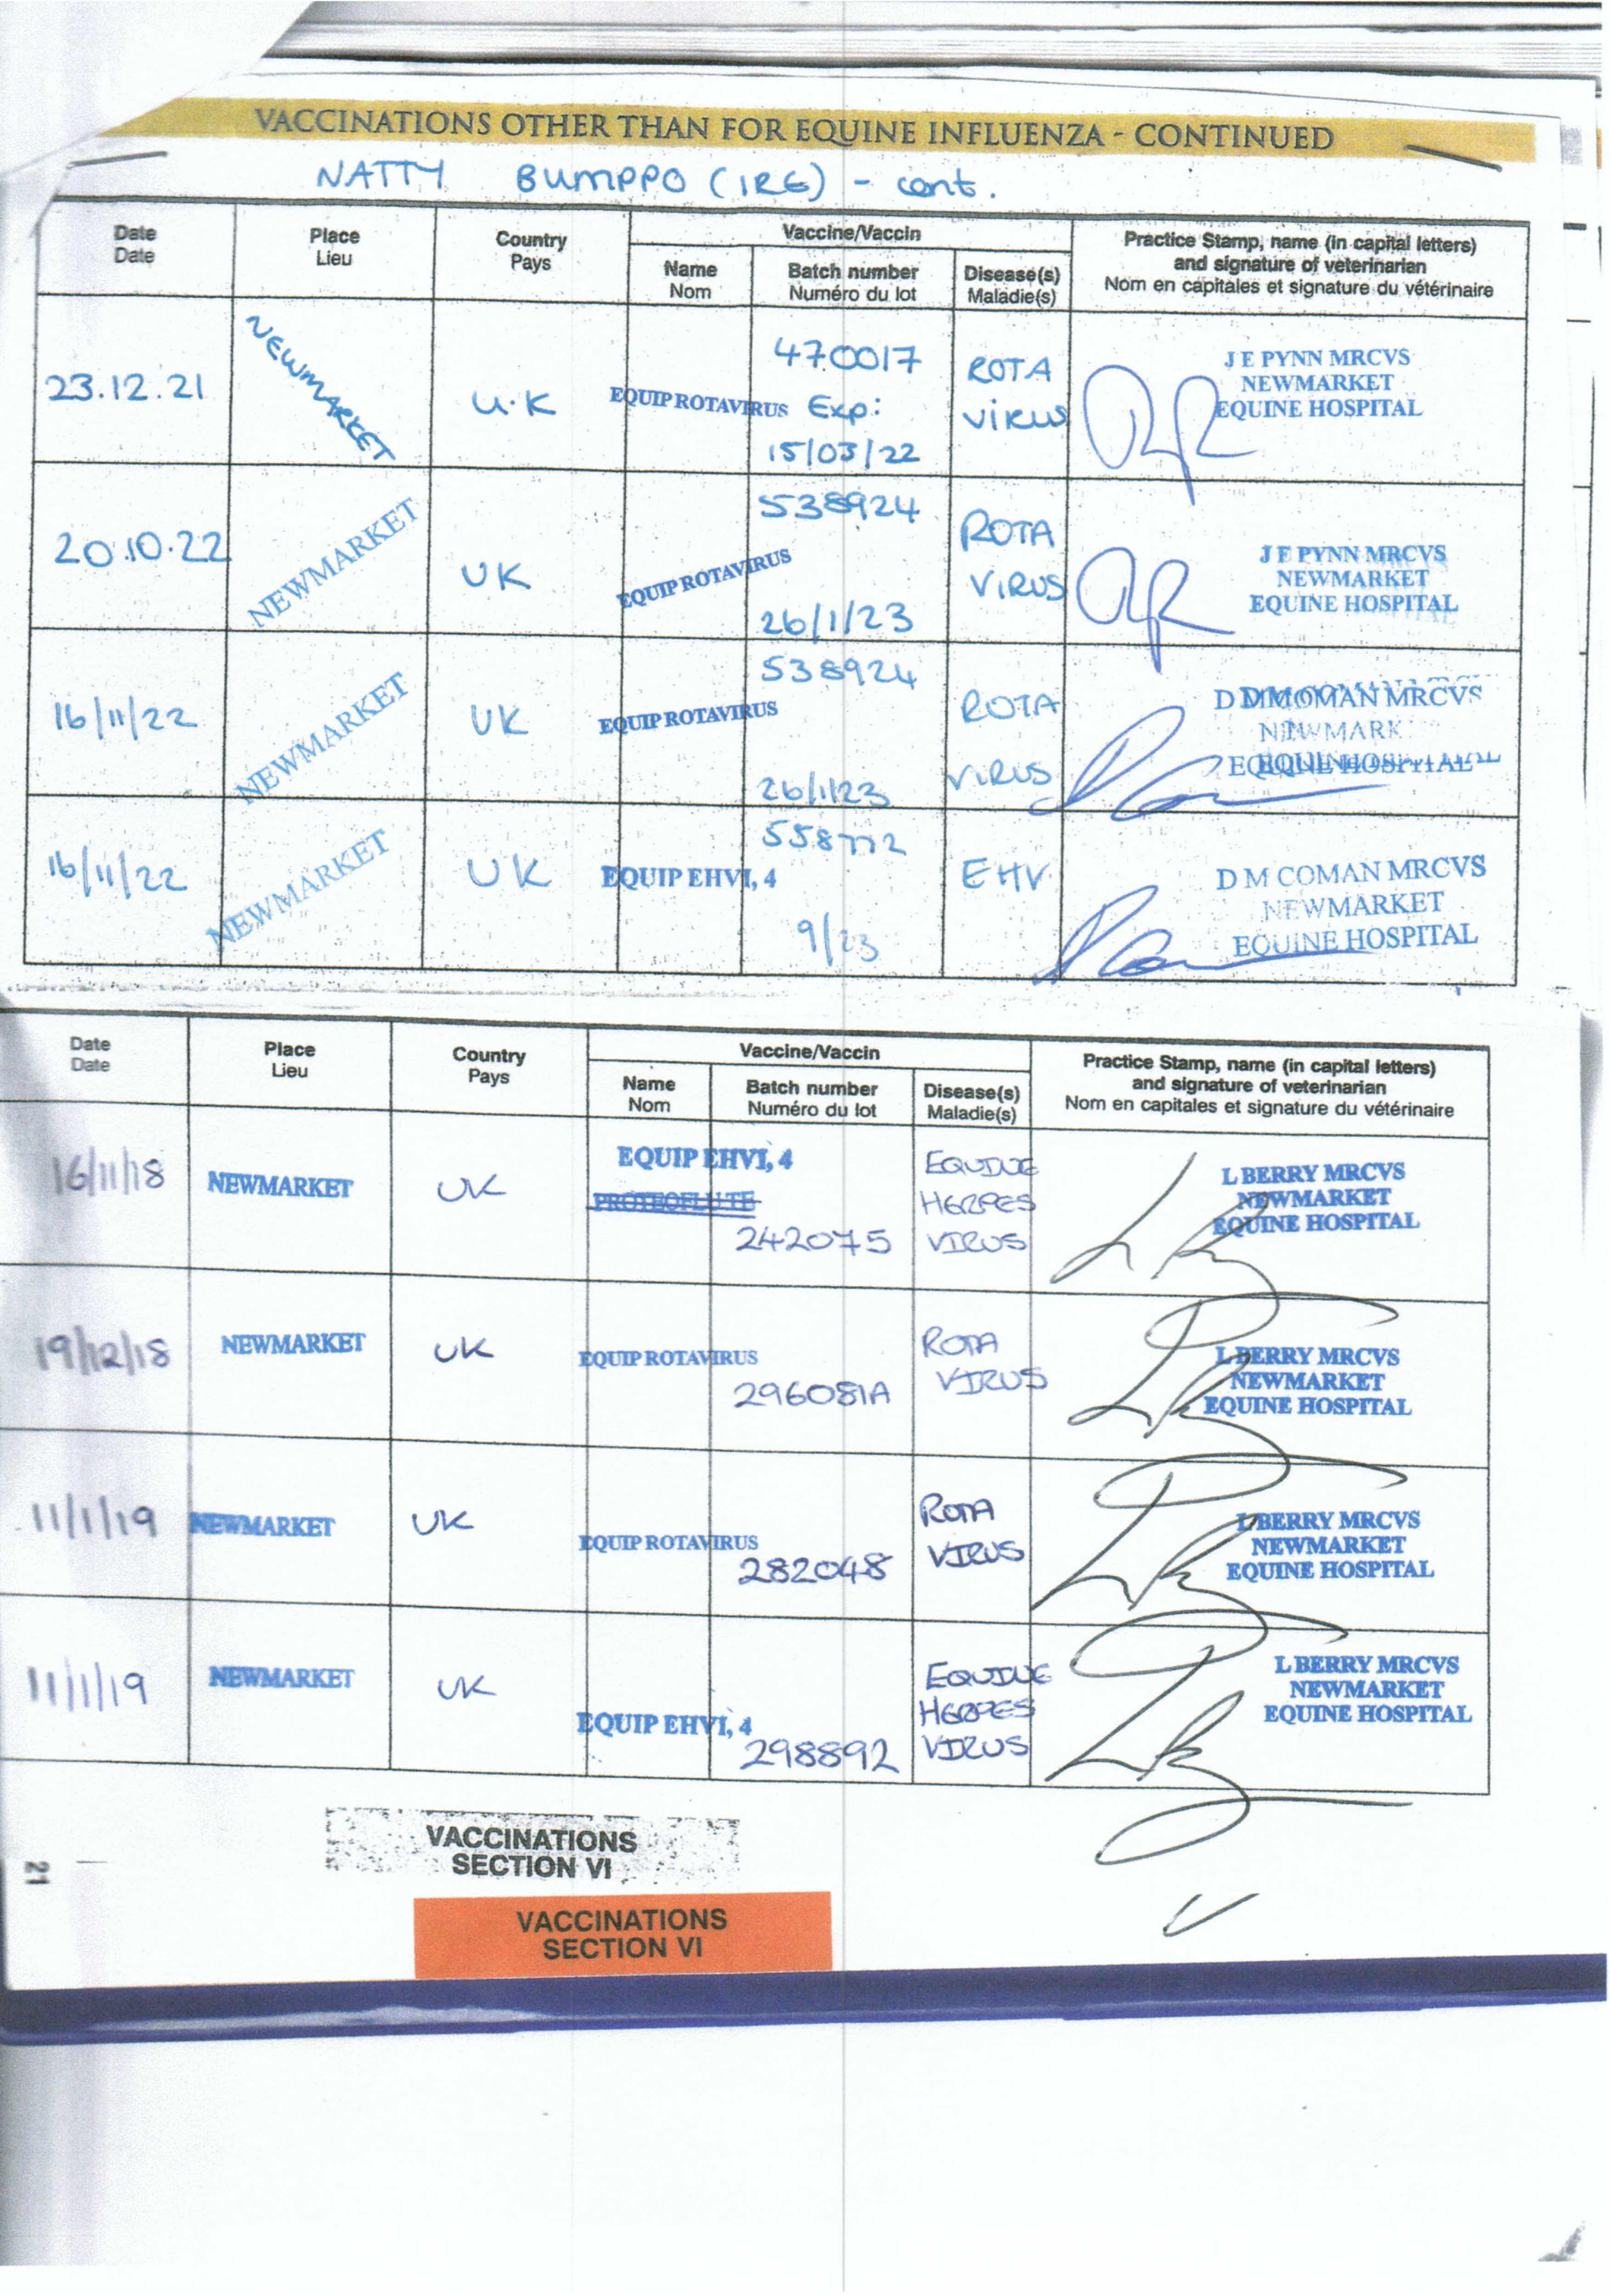 VACCINATIONS OTHER THAN FOR EQUINE INFLUENZA - CONTINUED
NATTY BUMPPO (IRE) - cont.
Date
Date
Place
Lieu
Country
Pays
Vaccine/Vaccin
Name
Nom
Batch number
Numéro du lot
Disease(s)
Maladie(s)
Practice Stamp, name (in capital letters)
and signature of veterinarian
Nom en capitales et signature du vétérinaire
23.12.21
NEWMARKET
U.K
EQUIP ROTAVIRUS
470017
Exp:
15/03/22
ROTA
VIRUS
J E PYNN MRCVS
NEWMARKET
EQUINE HOSPITAL
20.10.22
NEWMARKET
UK
EQUIP ROTAVIRUS
538924
26/1/23
ROTA
VIRUS
J E PYNN MRCVS
NEWMARKET
EQUINE HOSPITAL
16/11/22
NEWMARKET
UK
EQUIP ROTAVIRUS
538924
26/1/23
ROTA
VIRUS
MRCVS
16/11/22
NEWMARKET
UK
EQUIP EHV1, 4
558772
9/23
EHV
D M COMAN MRCVS
NEWMARKET
EQUINE HOSPITAL
Date
Date
Place
Lieu
Country
Pays
Vaccine/Vaccin
Name
Nom
Batch number
Numéro du lot
Disease(s)
Maladie(s)
Practice Stamp, name (in capital letters)
and signature of veterinarian
Nom en capitales et signature du vétérinaire
16/11/18
NEWMARKET
UK
EQUIP EHV1, 4
PROTEQFLU TE
242075
EQUINE
HERPES
VIRUS
L BERRY MRCVS
NEWMARKET
EQUINE HOSPITAL
19/12/18
NEWMARKET
UK
EQUIP ROTAVIRUS
296081A
ROTA
VIRUS
L BERRY MRCVS
NEWMARKET
EQUINE HOSPITAL
11/1/19
NEWMARKET
UK
EQUIP ROTAVIRUS
282048
ROTA
VIRUS
L BERRY MRCVS
NEWMARKET
EQUINE HOSPITAL
11/1/19
NEWMARKET
UK
EQUIP EHV1, 4
298892
EQUINE
HERPES
VIRUS
L BERRY MRCVS
NEWMARKET
EQUINE HOSPITAL
VACCINATIONS
SECTION VI
21
VACCINATIONS
SECTION VI